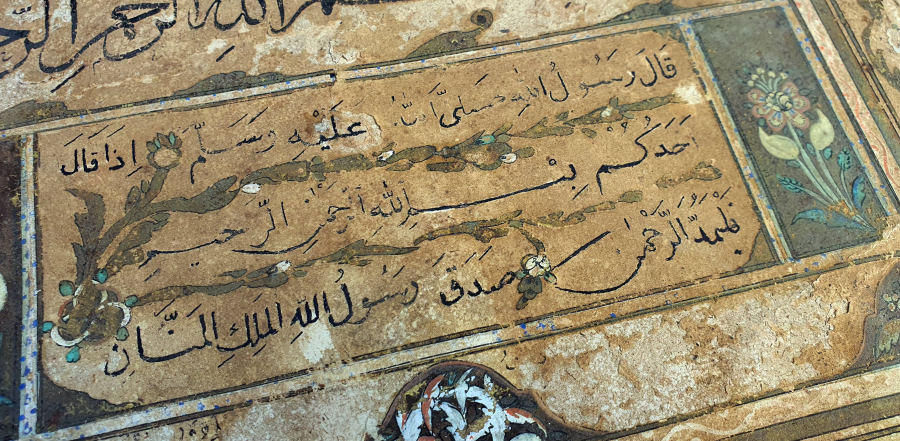 الله الرحمن الرحيم
قَالَ رَسُولُ اللهِ صَلَّى اللهُ عَلَيْهِ وَسَلَّمَ اِذَا قَالَ
اَحَدُكُمْ بِسْمِ اللهِ الرَّحْمٰنِ الرَّحِيمِ
فَلْيَمُدَّ الرَّحْمٰنَ صَدَقَ رَسُولُ اللهِ المَلِكِ المَنَّانِ